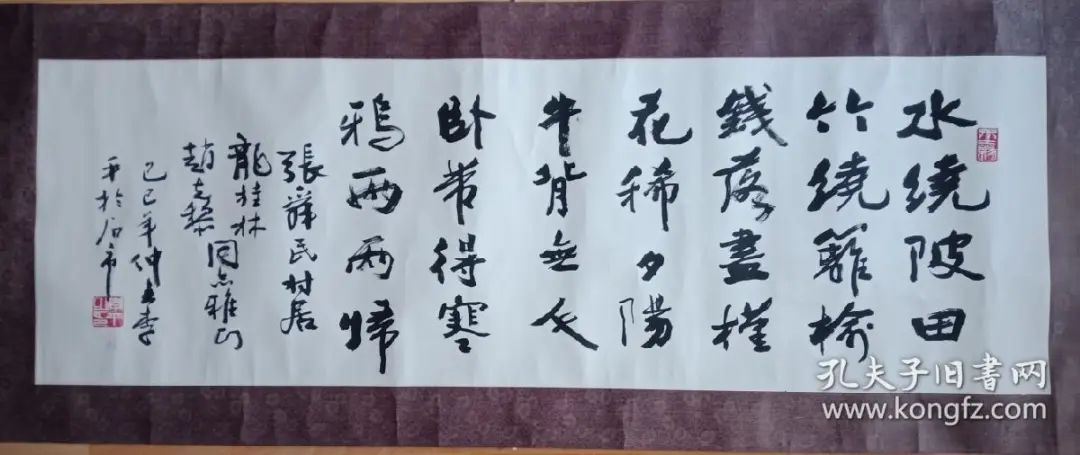 水繞陂田
竹繞籬榆
錢落盡槿
花稀夕陽
牛背無人
卧帶得寒
鴉兩兩歸
張舜民村居
龍桂林
趙 同志雅正
己巳年仲 李
平於石市
孔夫子旧書网
www.kongfz.com